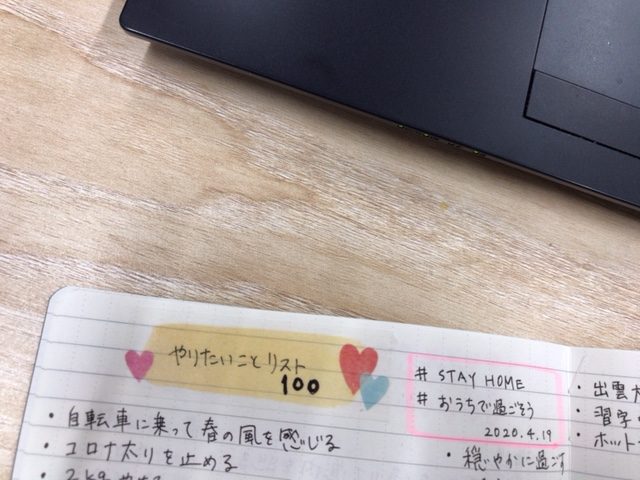 やりたいことリスト
100
# STAY HOME
# おうちで過ごそう
2020.4.19
・自転車に乗って春の風を感じる
・コロナ太りを止める
・穏やかに過す
・出雲
・習字
・ホット